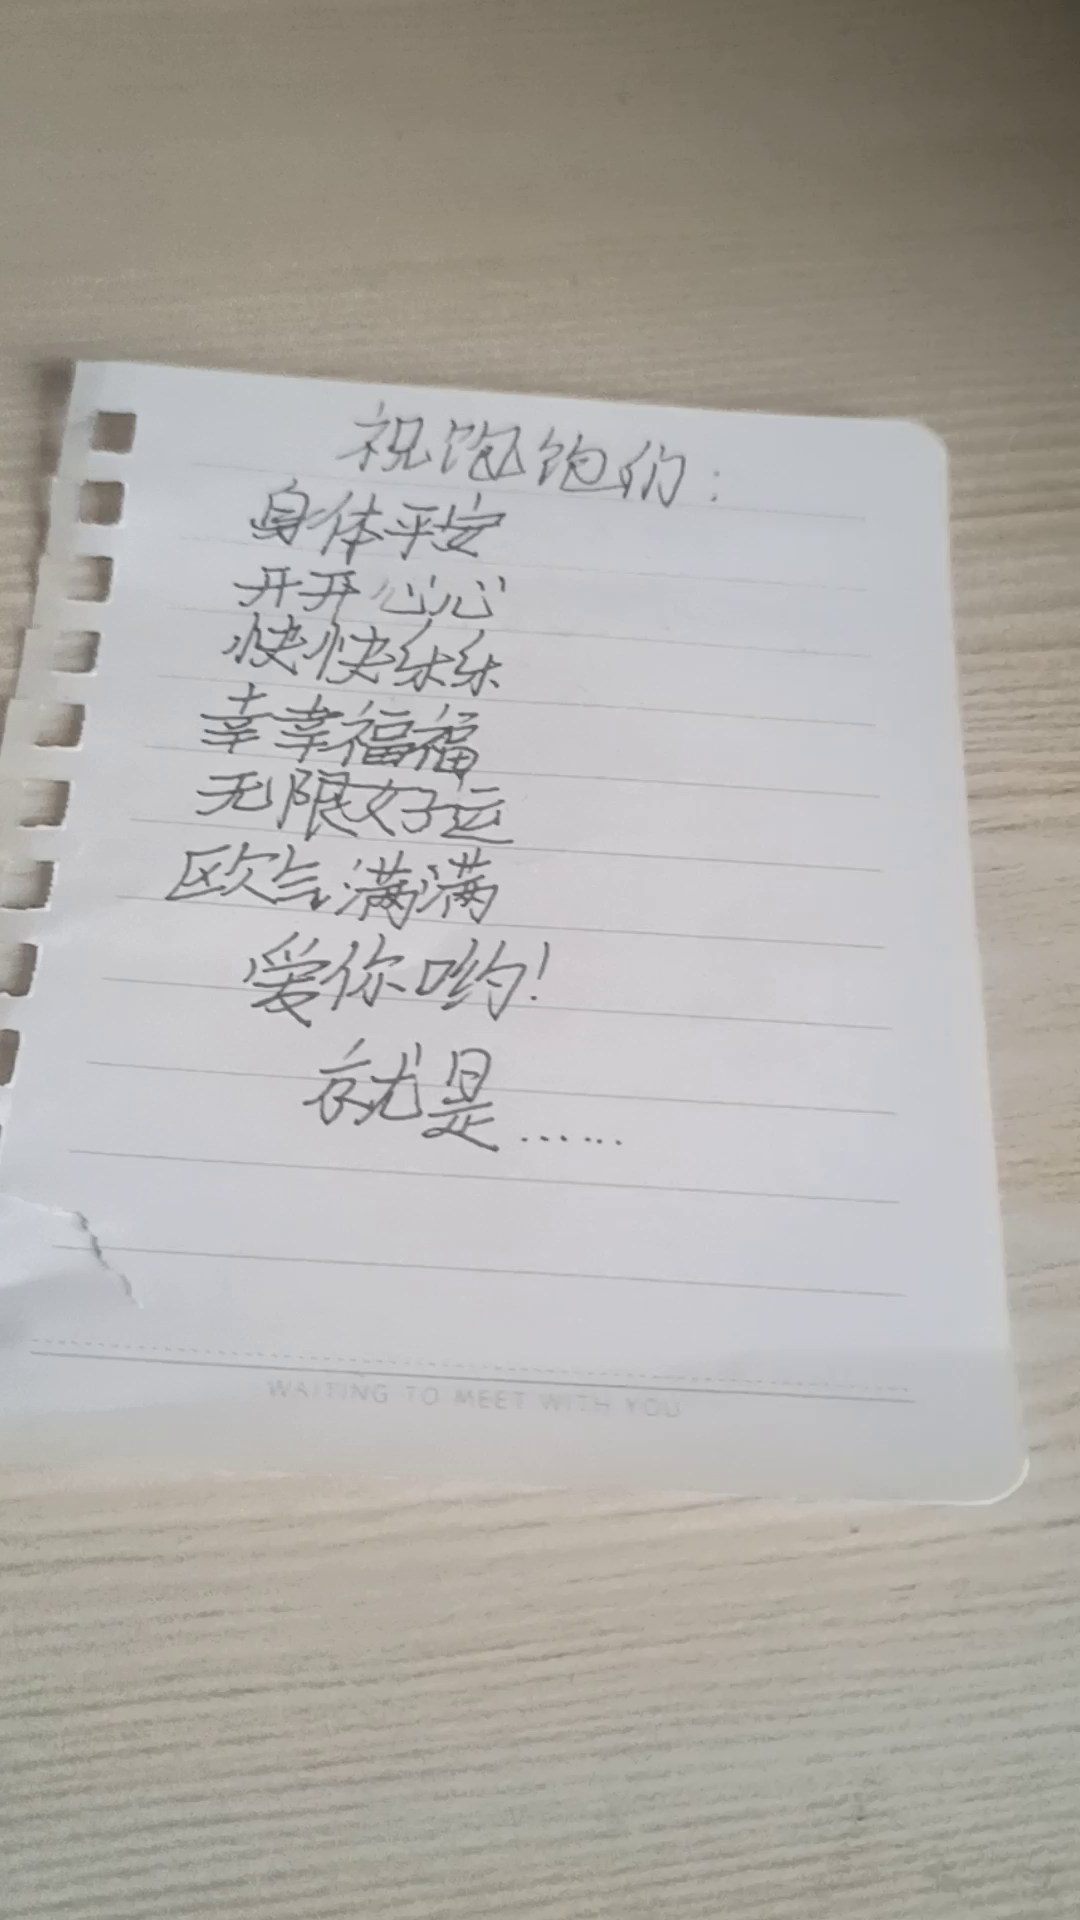 祝饱饱们：
身体平安
开开心心
快快乐乐
幸幸福福
无限好运
欧气满满
爱你哟！
就是……
WAITING TO MEET WITH YOU